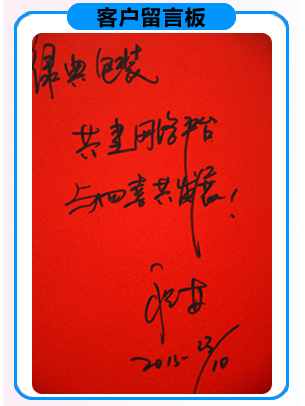 客户留言板
绿典包装
共建网络平台
与四喜共发展！
2015-23/10